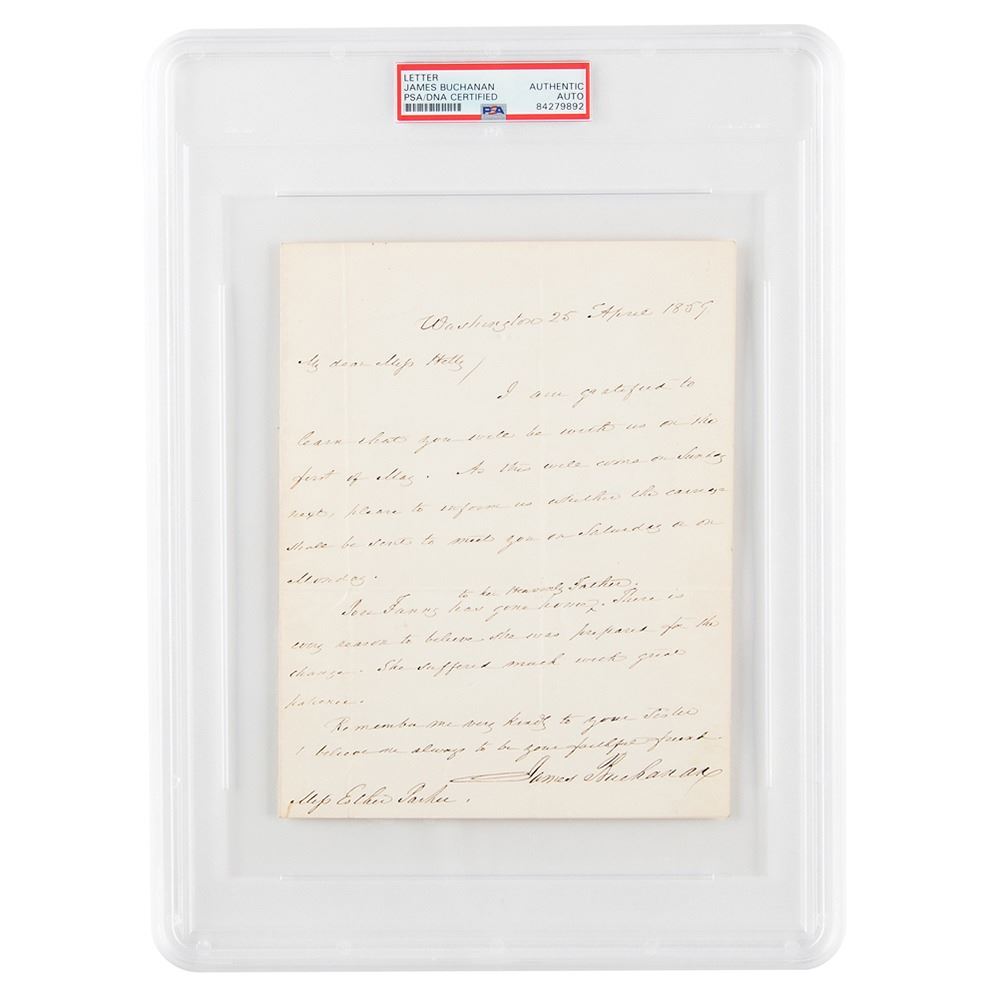 LETTER
JAMES BUCHANAN
PSA/DNA CERTIFIED
AUTHENTIC
AUTO
84279892
PSA
Washington 25 April 1859
My dear Miss Hetty/
I am gratified to
learn that you will be with us on the
first of May. As this will come on Sunday
next, please to inform us whether the carriage
shall be sent to meet you on Saturday or on
Monday.
to her Heavenly Father.
Fanny has gone home. There is
every reason to believe she was prepared for the
change. She suffered much with great
patience.
Remember me very kindly to your Sister
& believe me always to be your faithful friend.
James Buchanan
Miss Esther Parker.